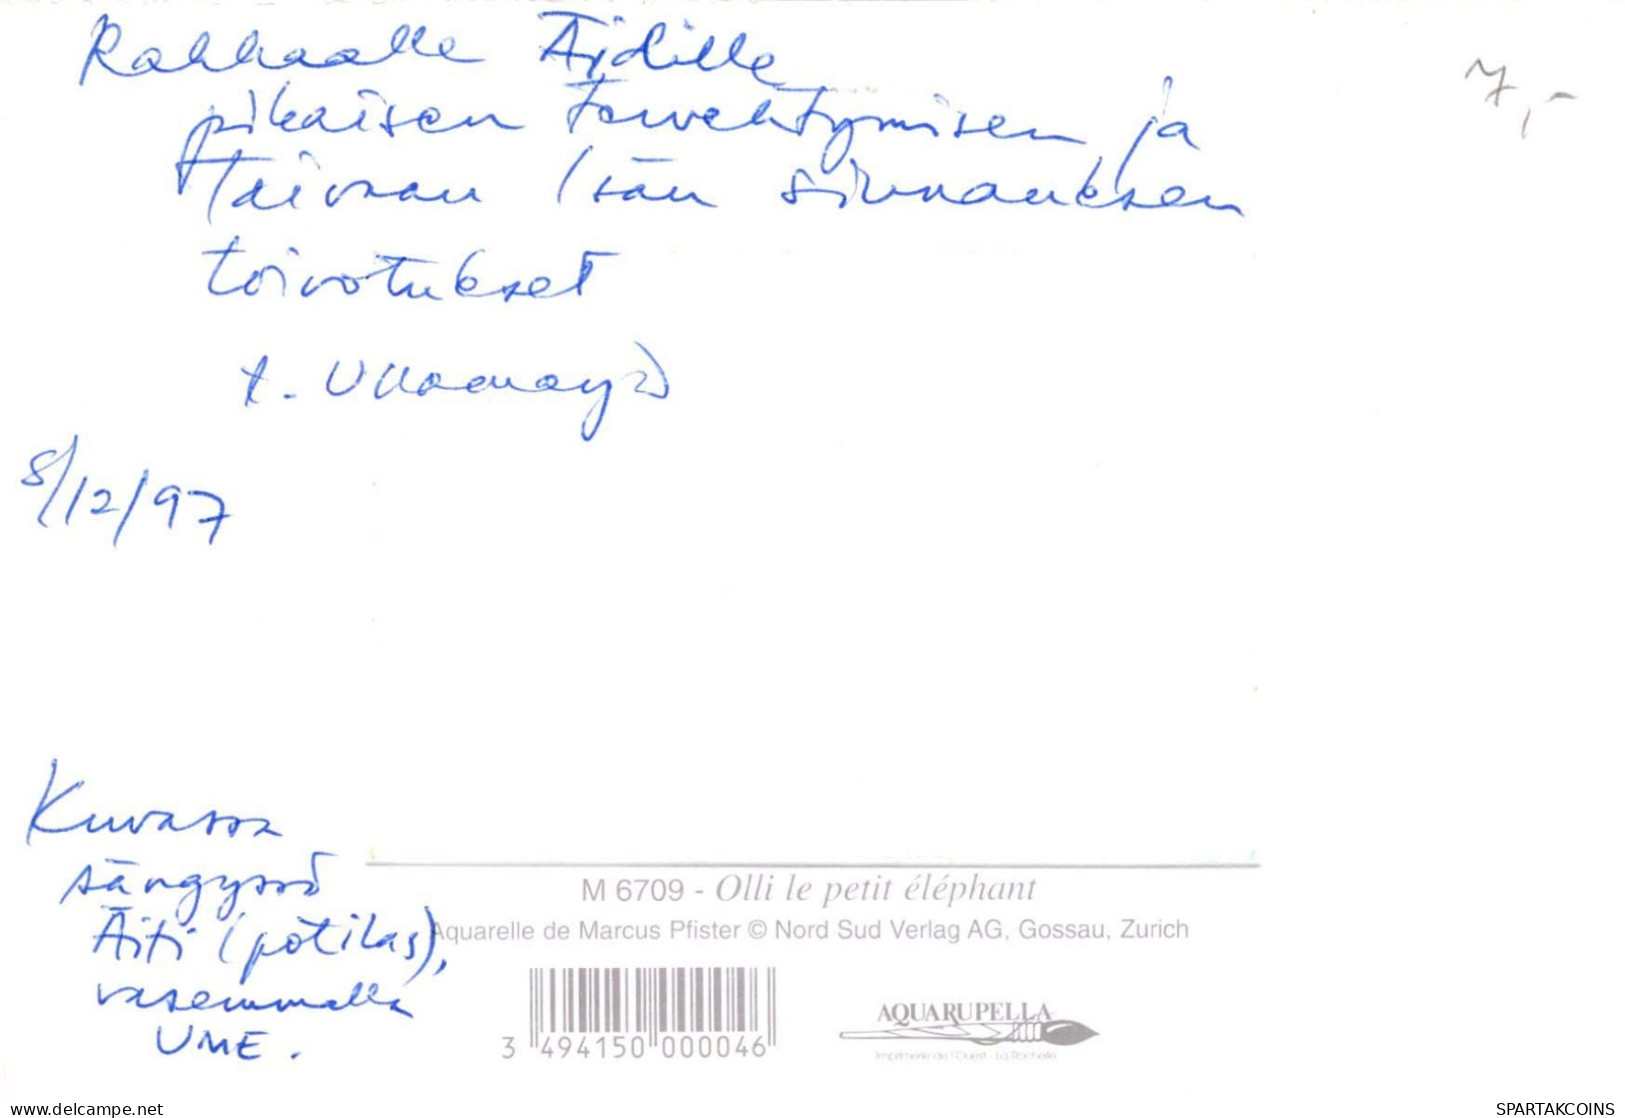 Rakkaalle Äidille
7,-
pikaisen tervehtymisen ja
Taivaan Isän siunauksen
toivotukset
t.
8/12/97
Kuvassa
sängyssä
Äiti (potilas),
vasemmalla
UME.
M 6709 - Olli le petit éléphant
Aquarelle de Marcus Pfister © Nord Sud Verlag AG, Gossau, Zurich
3 494150 000046
AQUARUPELLA
Imprimerie de l'Ouest - La Rochelle
www.delcampe.net
SPARTAKCOINS